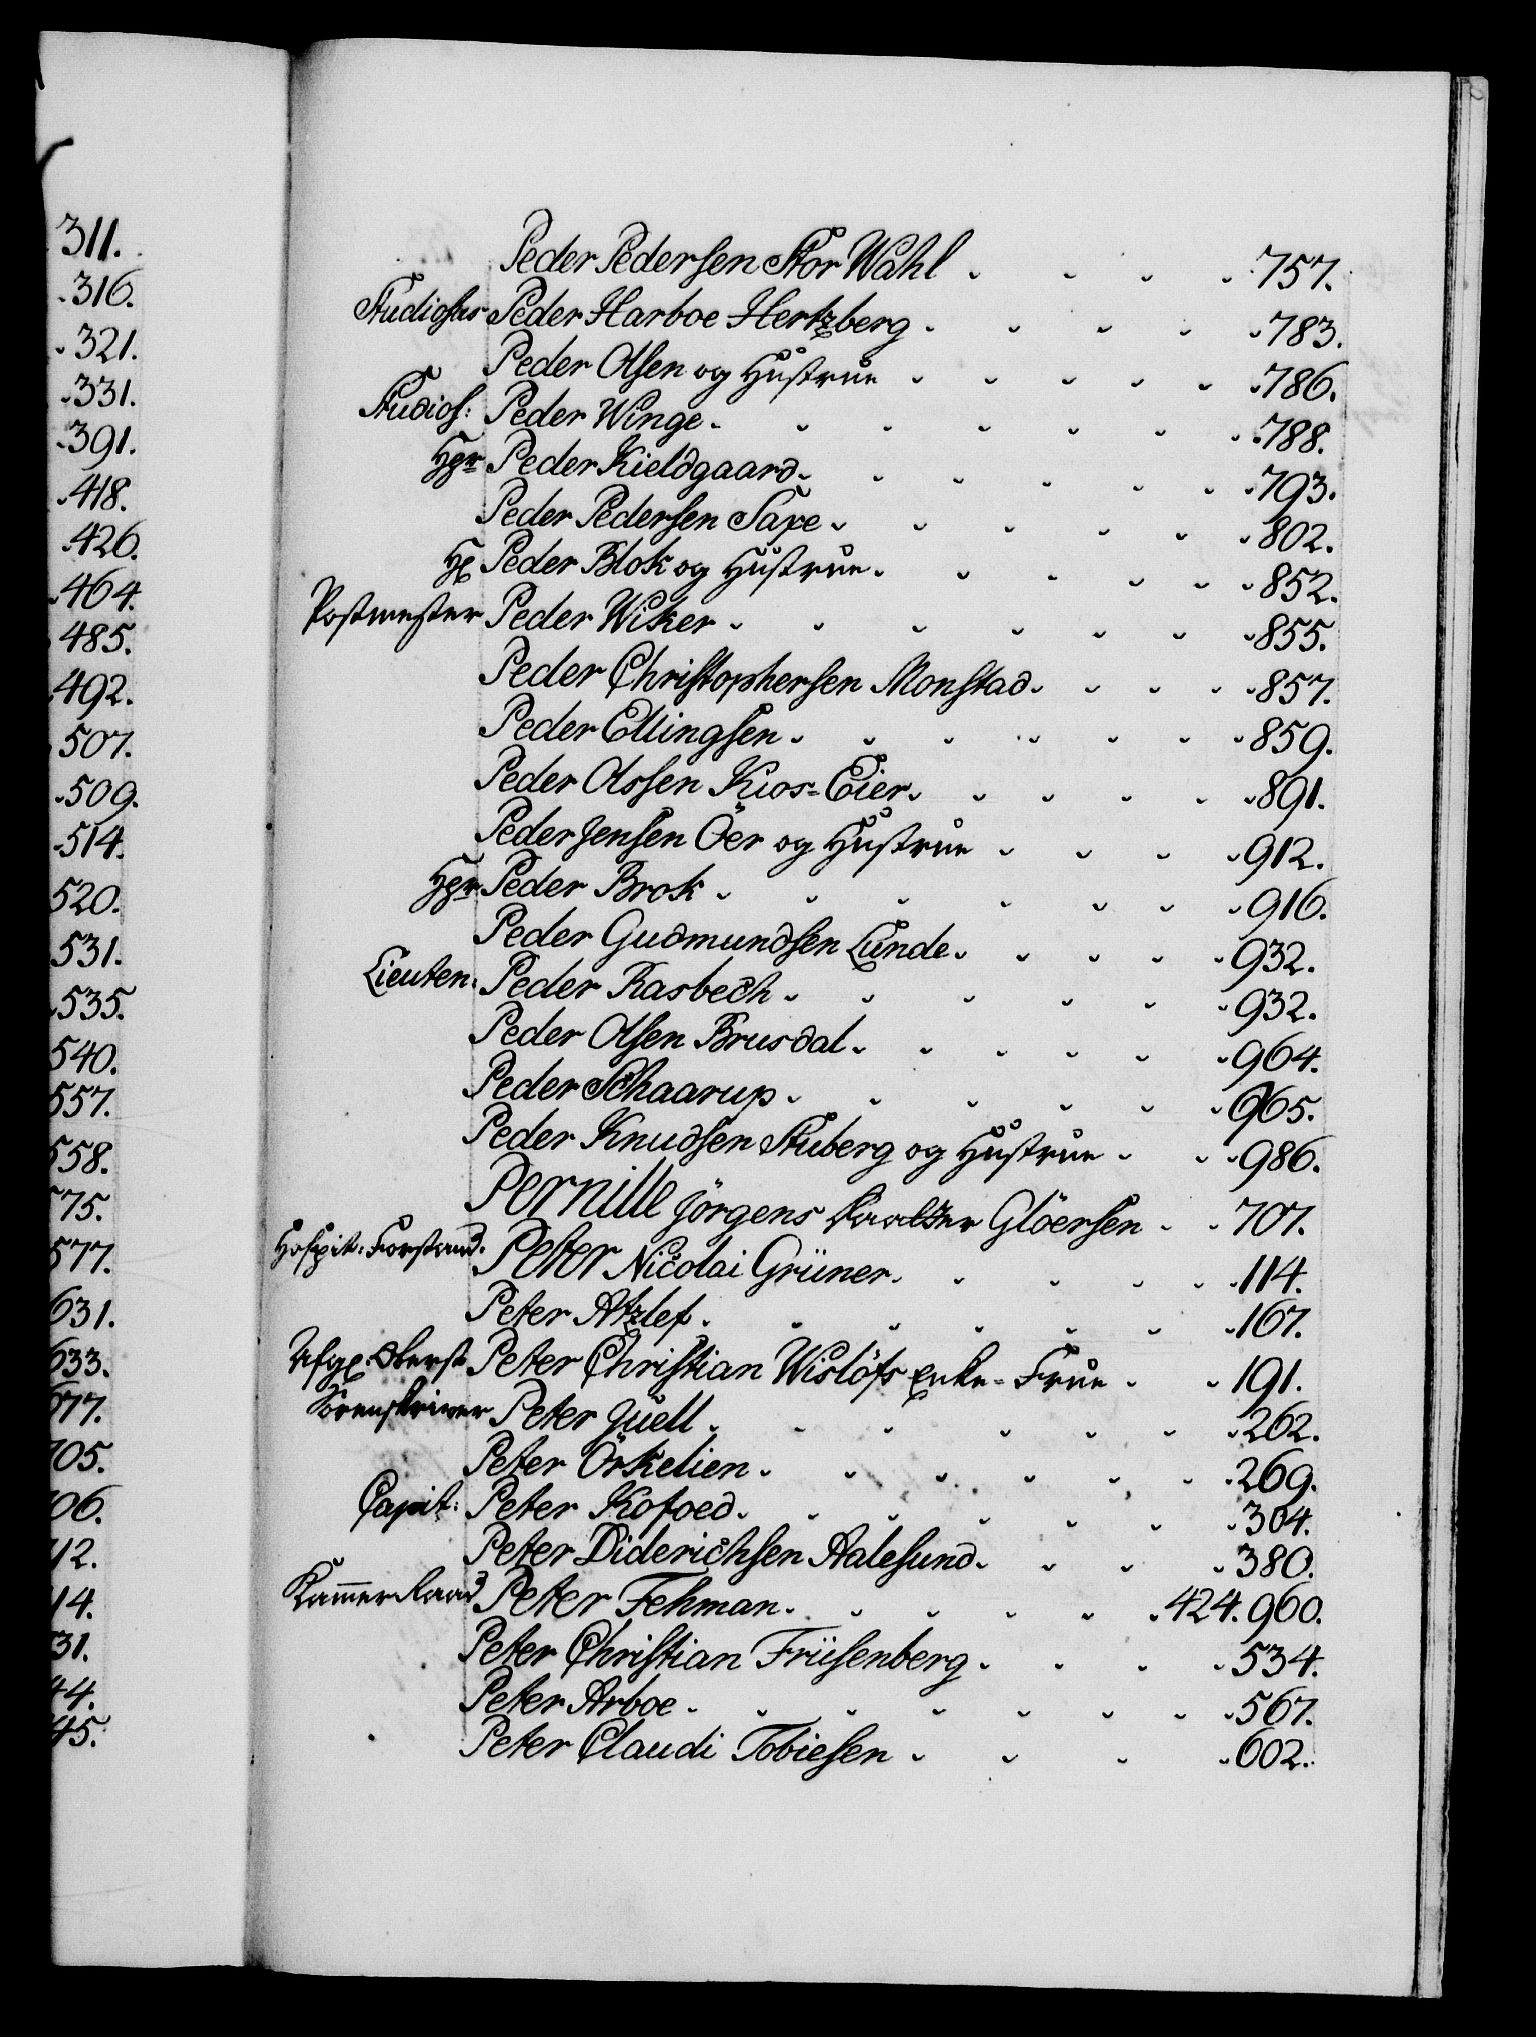 311.
316.
321.
331.
391.
418.
426.
464.
485.
492.
507.
509.
514.
520.
531.
535.
540.
557.
558.
75.
577.
631.
633.
677.
705.
06.
12.
14.
31.
44.
45.
Peder Pedersen Stor Wahl 757.
Studiosus Peder Harboe Hertzberg 783.
Peder Olsen og Hustrue 786.
Studios: Peder Winge 788.
Hgr Peder Kieldgaard 793.
Peder Pedersen Saxe 802.
Hr Peder Blok og Hustrue 852.
Postmester Peder Wiker 855.
Peder Christophersen Monstad 857.
Peder Ellingsen 859.
Peder Olssen Kios-Eier 891.
Peder Jensen Öer og Hustrue 912.
Hgr Peder Brok 916.
Peder Gudmundsen Lunde 932.
Lieuten: Peder Rasbech 932.
Peder Olsen Brusdal 964.
Peder Schaarup 965.
Peder Knudsen Stuberg og Hustrue 986.
Pernille Jörgens Daatter Glöersen 707.
Hospit: Forstand. Peter Nicolai Grüner 114.
Peter Atzlef 167.
Afg: Oberst Peter Christian Wislöfs Enke-Frue 191.
Sorenskriver Peter Juell 262.
Peter Örkelien 269.
Capit: Peter Kofoed 304.
Peter Diderichsen Aalesund 380.
Kammer Raad Peter Fehman 424. 960.
Peter Christian Früsenberg 534.
Peter Arboe 567.
Peter Claudi Tobiesen 602.